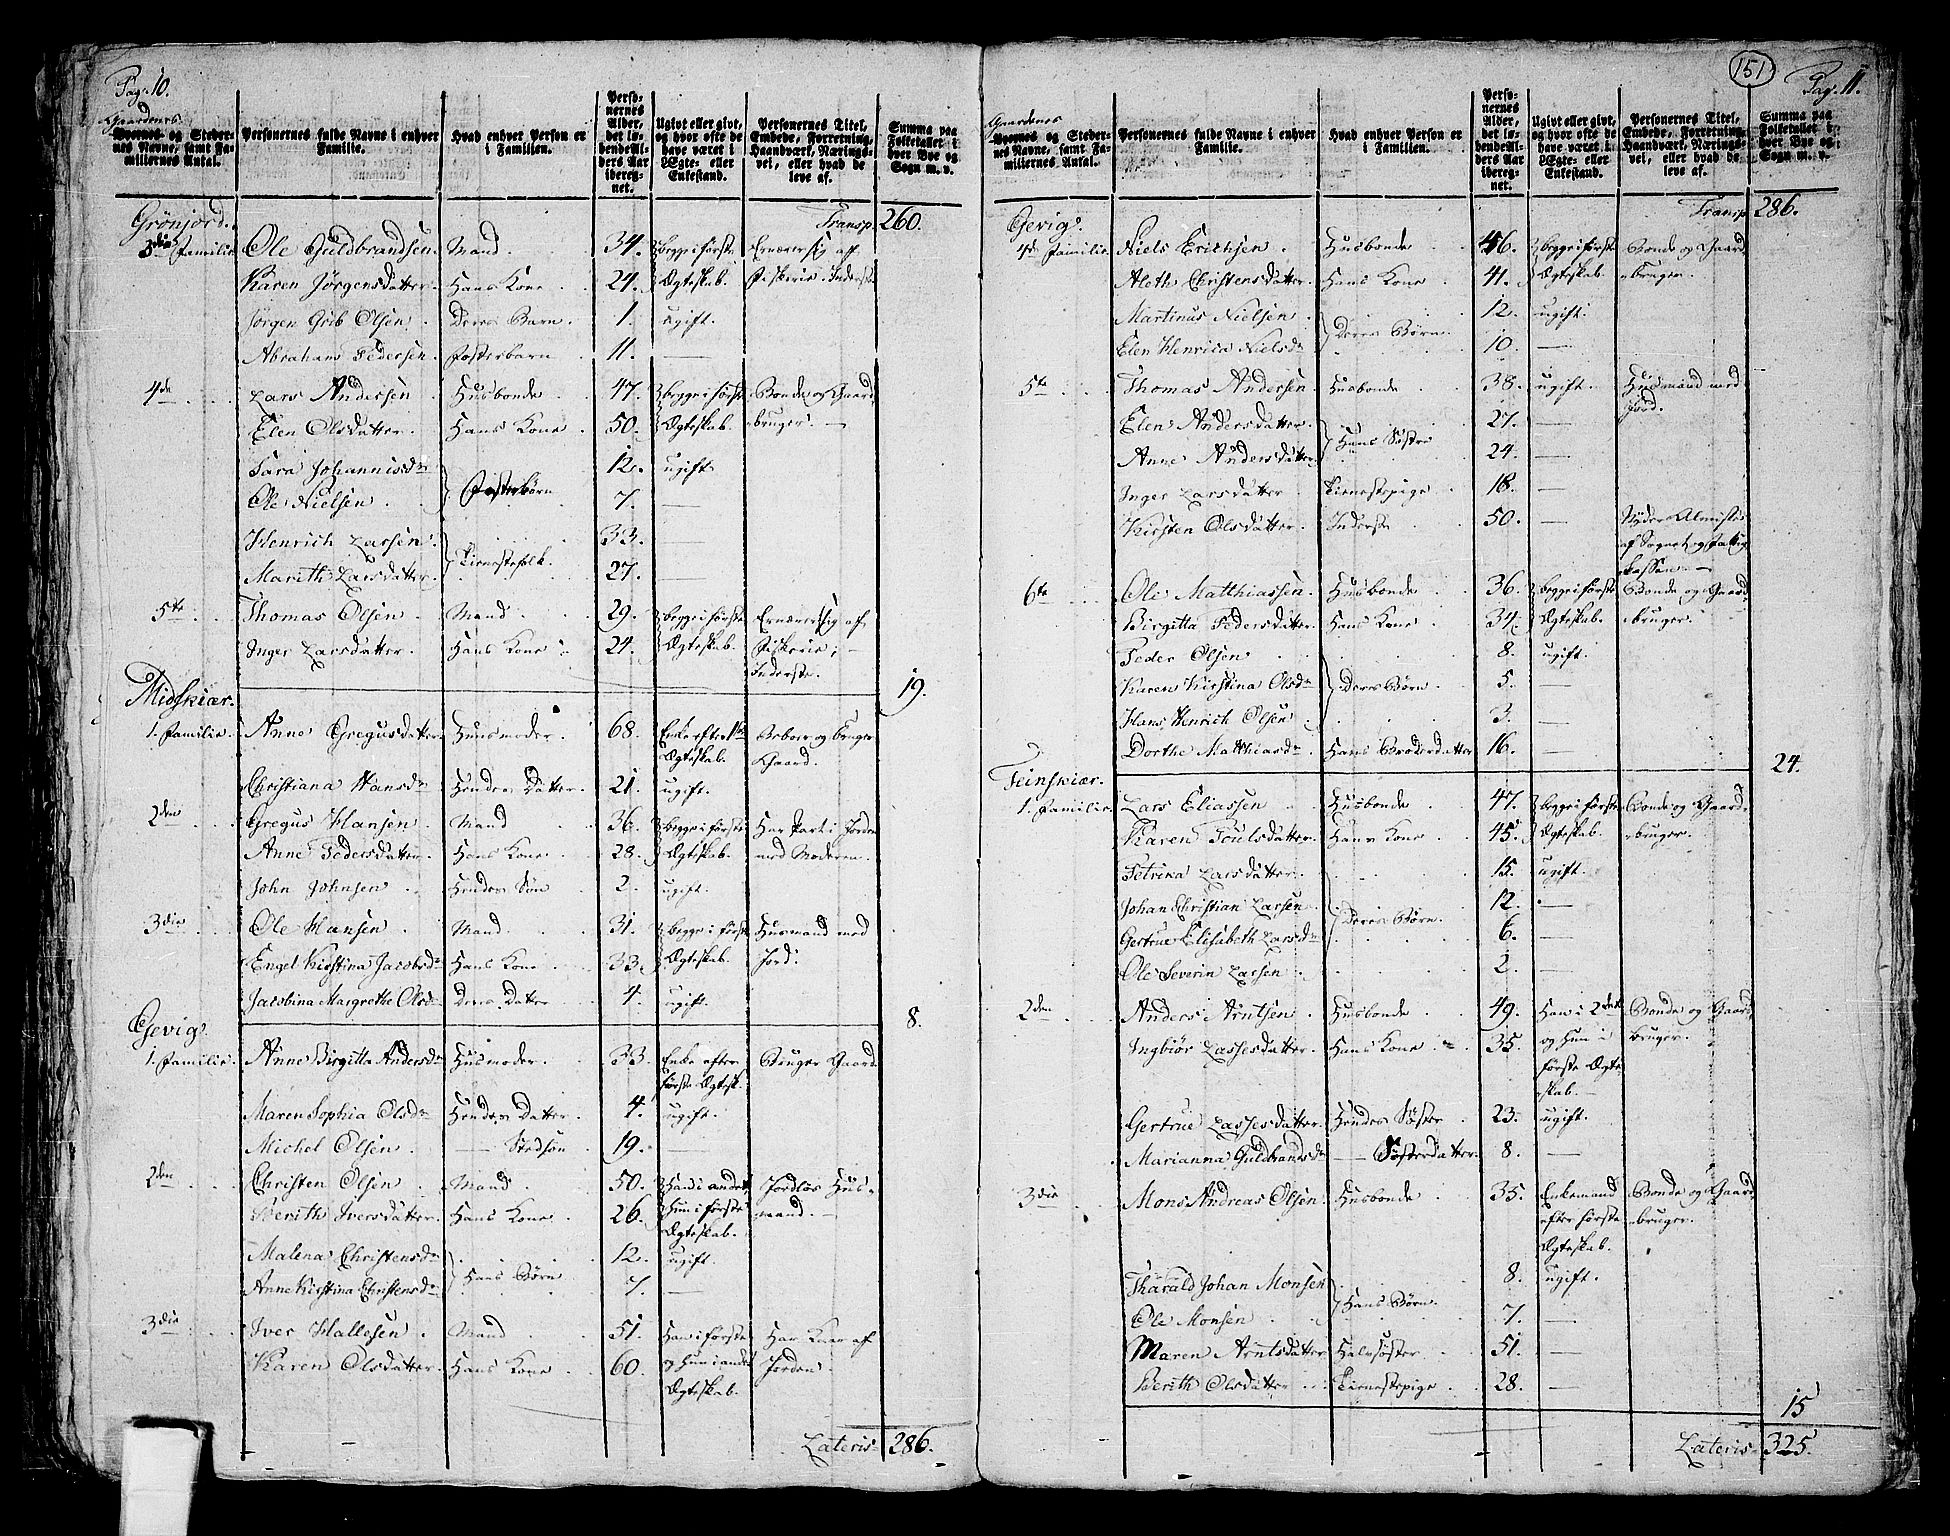 Pag. 10.
Gaardenes
Byernes og Steder-
nes Navne, samt Fa-
miliernes Antal.
Personernes fulde Navne i enhver
Familie.
Hvad enhver Person er
i Familien.
Perso-
nernes
Alder,
det lø-
bende Al-
ders Aar
ibereg-
net.
Ugivt eller givt,
og hvor ofte de
have været i
Ægte- eller
Enkestand.
Personernes Titel,
Embede, Forretning,
Haandværk, Nærings-
vei, eller hvad de
leve af.
Summa paa
Folketallet i
hver Bye og
Sogn m. v.
Grönjord. Transp. 260.
3die Familie Ole Guldbrandsen Mand 34. begge i første Ernærer sig af
Karen Jörgensdatter Hans Kone 24. Ægteskab. Fiskerie. Inderste
Jörgen Grib Olsen Deres Barn 1. ugift.
Abraham Pedersen Fosterbarn 11. —
4de Lars Andersen Husbonde 47. begge i første Bonde og Gaard
Elen Olsdatter Hans Kone 50. Ægteskab. bruger. —
Sara Johannisdr 12. ugift
Ole Nielsen Fosterbörn 7. —
Henrich Larsen 33. —
Marith Larsdatter Tienestefolk. 27. —
5te Thomas Olsen Mand 29. begge i første Ernærer sig af
Inger Larsdatter Hans Kone 24. Ægteskab. Fiskerie; —
Inderste.
Midskiær. 19.
1. Familie. Anne Gregusdatter Huusmoder. 68. Enke efter 1te Beboer og bruger
Ægteskab. Gaard.
Christiana Hansdr Hendes Datter 21. ugift.
2den Gregus Hansen Mand 36. begge i første Har Part i Jorden
Anne Pedersdatter Hans Kone 28. Ægteskab. med Moderen.
John Johnsen Hendes Sön 2. ugift.
3die Ole Hansen Mand 31. begge i første Husmand med
Engel Kirstina Jacobsdr Hans Kone 33. Ægteskab. Jord.
Jacobina Margrethe Olsdr Deres Datter 4. ugift.
Gevig. 8.
1. Familie. Anne Birgitta Andersdr Husmoder. 33. Enke efter Bruger Gaard
første Ægtesk.
Maren Sophia Olsdr Hendes Datter 4. ugift.
Michel Olsen — Stedsön 19. —
2den Christen Olsen Mand 50. Han i andet Jordlös Hus-
Berith Iversdatter Hans Kone 26. Hun i første mand. —
Ægteskab.
Malena Christensdr 12. ugift.
Anne Kirstina Christensdr Hans Börn 7. —
3die Iver Hallesen Mand 51. Han i første Har Kaar af
Karen Olsdatter Hans Kone 60. og Hun i andet Jorden.
Ægteskab.
Lateris 286.
151
Pag. 11.
Gaardenes
Byernes og Steder-
nes Navne, samt Fa-
miliernes Antal.
Personernes fulde Navne i enhver
Familie.
Hvad enhver Person er
i Familien.
Perso-
nernes
Alder,
det lø-
bende Al-
ders Aar
ibereg-
net.
Ugivt eller givt,
og hvor ofte de
have været i
Ægte- eller
Enkestand.
Personernes Titel,
Embede, Forretning,
Haandværk, Nærings-
vei, eller hvad de
leve af.
Summa paa
Folketallet i
hver Bye og
Sogn m. v.
Gevig. Transp. 286.
4de Familie Niels Erichsen Husbonde 46. begge i første Bonde og Gaard
Aleth Christensdatter Hans Kone 41. Ægteskab. bruger.
Martinus Nielsen 12. ugift.
Elen Henrica Nielsdr Deres Börn 10. —
5te Thomas Andersen Husbonde 38. ugift. Husmand med
Jord.
Elen Andersdatter 27. —
Anne Andersdatter Hans Söstre 24. —
Inger Larsdatter Tienestepige 18. —
Kirsten Olsdatter Inderste 50. — Nyder Almisse
af Sognet og Fattig
kassen. —
6te Ole Matthiassen Husbonde 36. begge i første Bonde og Gaard
Birgitta Pedersdatter Hans Kone 34. Ægteskab. bruger.
Peder Olsen 8. ugift.
Karen Kirstina Olsdr Deres Börn 5. —
Hans Henrich Olsen 3. —
Dorthe Matthiasdr Hans Broderdatter 16. —
Teinskiær. 24.
1. Familie Lars Eliassen Husbonde 47. begge i første Bonde og Gaard
Karen Poulsdatter Hans Kone 45. Ægteskab. bruger.
Petrika Larsdatter 15. ugift.
Johan Christian Larsen 12. —
Gertrue Elisabeth Larsdr Deres Börn 6. —
Ole Severin Larsen 2. —
2den Anders Arntsen Husbonde 49. Han i 2det Bonde og Gaard
Ingbiör Lassesdatter Hans Kone 35. og Hun i bruger.
første Ægte
skab. —
Gertrue Lassesdatter Hendes Söster 23. ugift.
Marianna Guldbrandsdr — Sösterdatter 8. —
3die Mons Andreas Olsen Husbonde 35. Enkemand Bonde og Gaard
efter første bruger.
Ægteskab.
Tharald Johan Monsen 8. ugift.
Ole Monsen Hans Börn 7. —
Maren Arntsdatter Halvsöster 51. —
Berith Olsdatter Tienestepige 28. —
15
Lateris 325.